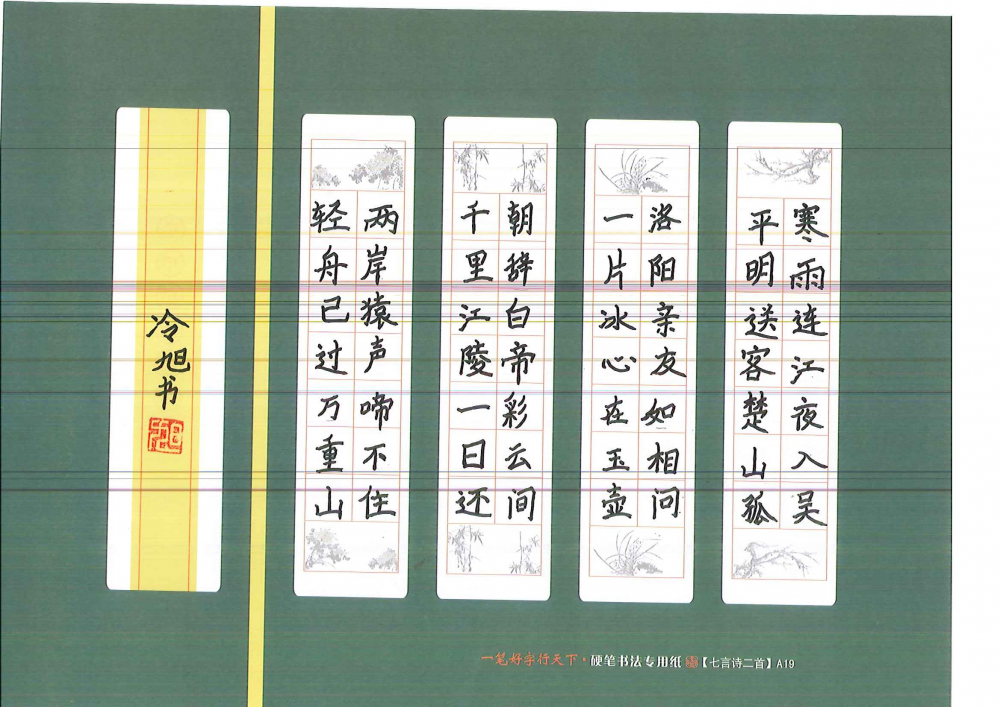 寒雨连江夜入吴
平明送客楚山孤
洛阳亲友如相问
一片冰心在玉壶
朝辞白帝彩云间
千里江陵一日还
两岸猿声啼不住
轻舟已过万重山
冷旭书
一笔好字行天下·硬笔书法专用纸【七言诗二首】A19